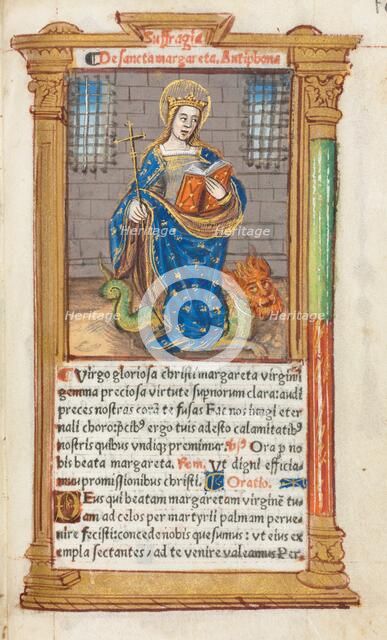 Suffragia
De sancta margareta. Antiphona
Virgo gloriosa christi margareta virginū
gemma preciosa virtute supnorum clara: audi
preces nostras corā te fusas Fac nos iungi eter
nali choro: pcib⁹ ergo tuis adesto calamitatib⁹
nostris quibus vndiq; premimur. Ora p no
bis beata margareta. Ut digni efficia
mur promissionibus christi. Oratio.
DEus qui beatam margaretam virginē tu
am ad celos per martyrii palmam perue
nire fecisti: concede nobis quesumus: vt eius ex
empla sectantes, ad te venire valeamus Per.
Heritage Heritage
Heritage Heritage